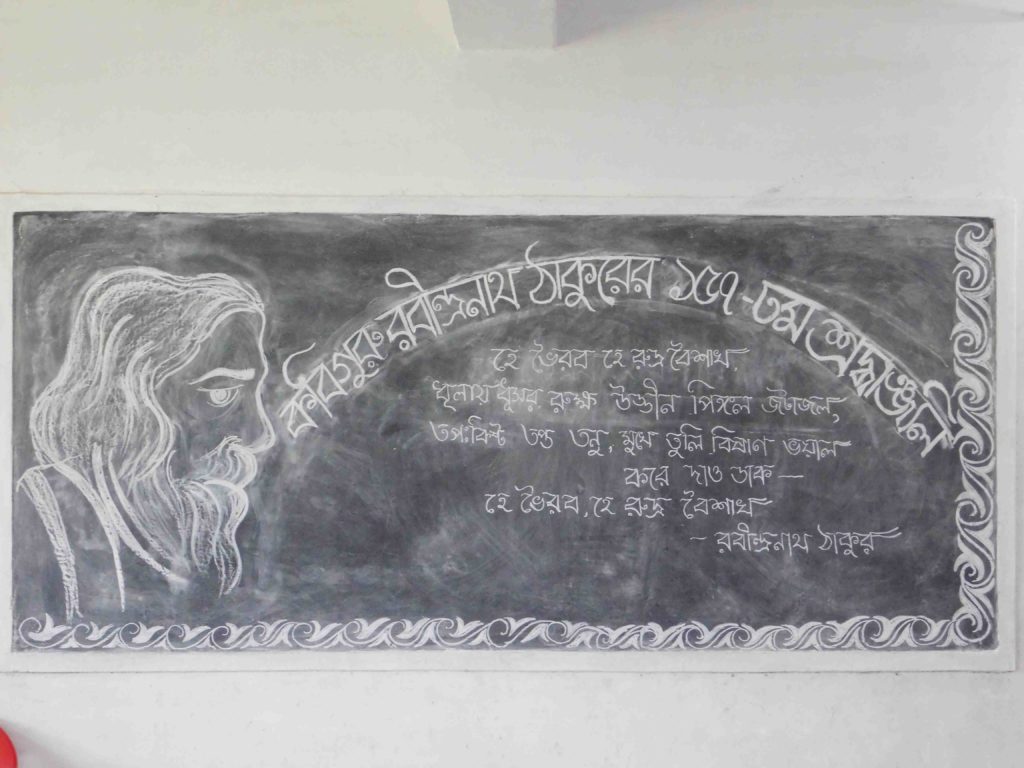 কবিগুরু রবীন্দ্রনাথ ঠাকুরের ১৫৭-তম শ্রদ্ধাঞ্জলী
হে ভৈরব হে রুদ্র বৈশাখ,
ধূলায় ধূসর রুক্ষ উড্ডীন পিঙ্গল জটাজাল,
তপঃক্লিষ্ট তপ্ত তনু, মুখে তুলি বিষাণ ভয়াল
করে দাও ডাক —
হে ভৈরব, হে রুদ্র বৈশাখ
- রবীন্দ্রনাথ ঠাকুর